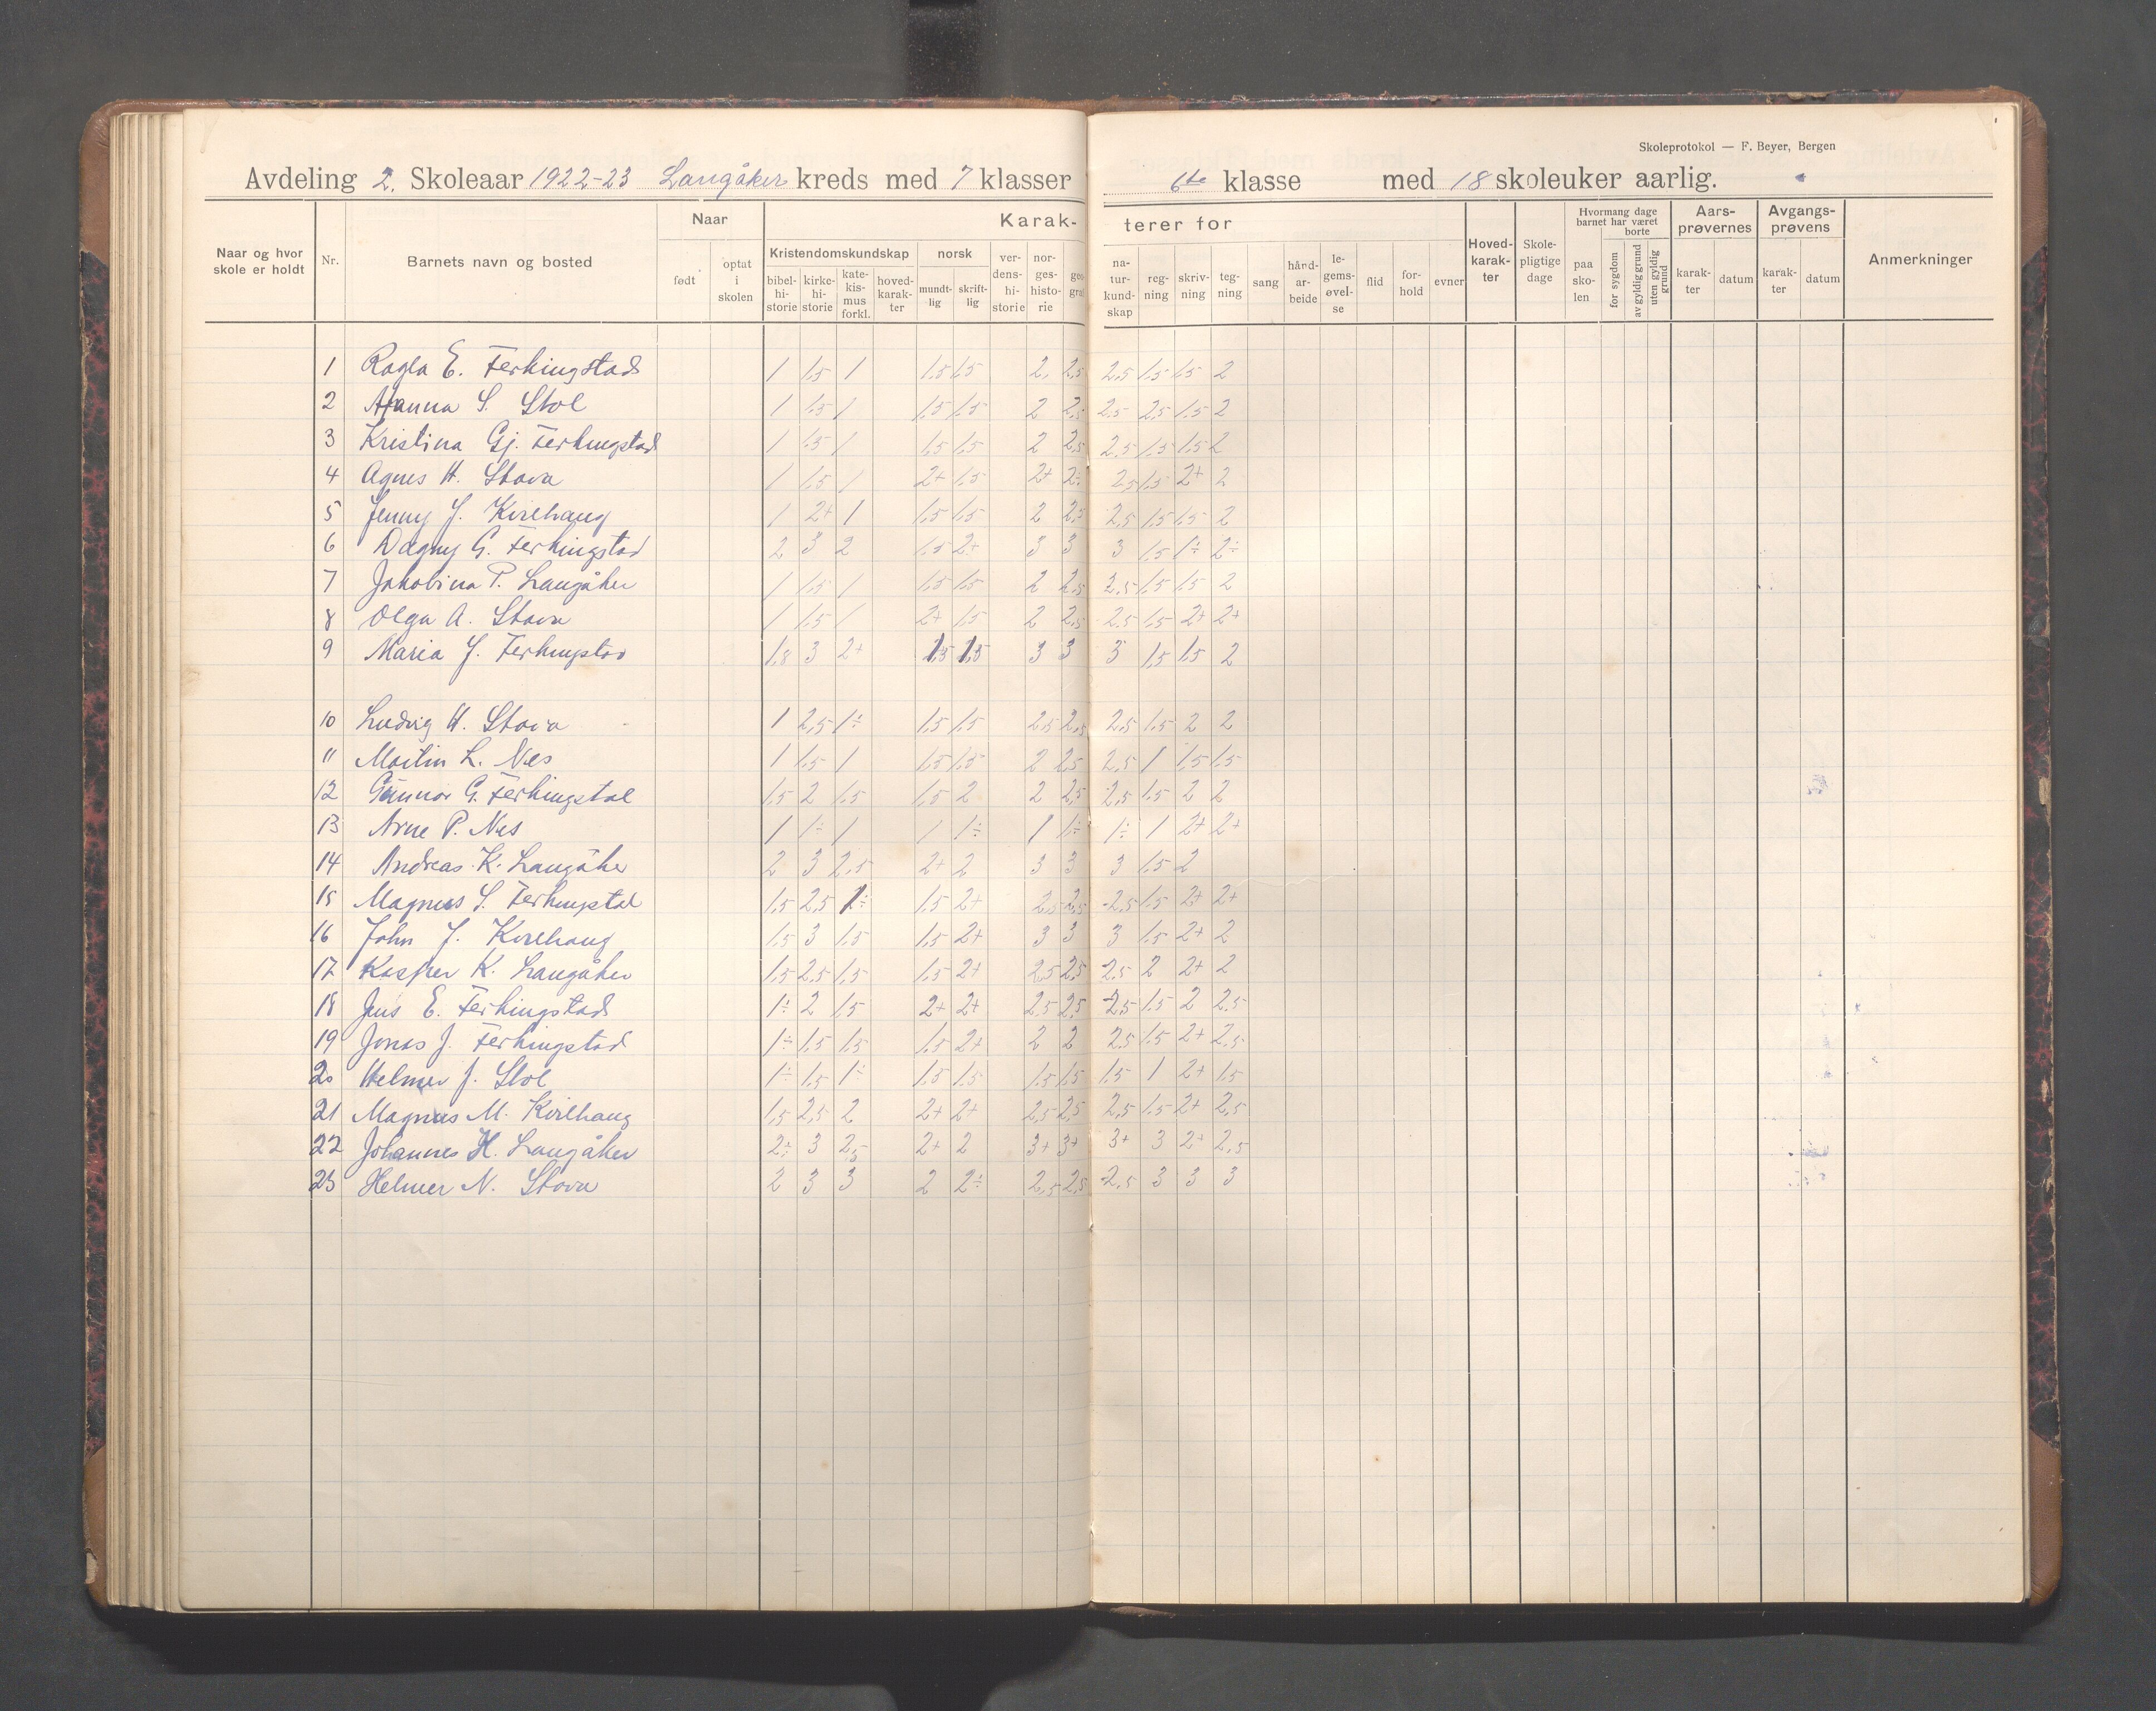 Skoleprotokol — F. Beyer, Bergen
Avdeling 2. Skoleaar 1922-23 Langåker kreds med 7 klasser 6te klasse med 18 skoleuker aarlig.
Naar og hvor skole er holdt Nr. Barnets navn og bosted Naar født optat i skolen Karakterer for Kristendomskundskap bibelhistorie kirkehistorie katekismus forkl. hovedkarakter norsk mundtlig skriftlig verdenshistorie norgeshistorie geografi naturkundskap regning skrivning tegning sang håndarbeide legemsøvelse flid forhold evner Hovedkarakter Skolepligtige dage Hvormang dage barnet har været paa skolen borte for sygdom av gyldig grund uten gyldig grund Aarsprøvernes karakter datum Avgangsprøvens karakter datum Anmerkninger
1 Ragla E. Ferkingstad 1 1.5 1 1.5 1.5 2. 2.5 2.5 1.5 1.5 2
2 Hanna S. Stol 1 1.5 1 1.5 1.5 2 2.5 2.5 2.5 1.5 2
3 Kristina Gj. Ferkingstad 1 1.5 1 1.5 1.5 2 2.5 2.5 1.5 1.5 2
4 Agnes H. Stava 1 1.5 1 2+ 1.5 2+ 2÷ 2.5 1.5 2+ 2
5 Jenny J. Kvilhaug 1 2+ 1 1.5 1.5 2 2.5 2.5 1.5 1.5 2
6 Dagny G. Ferkingstad 2 3 2 1.5 2+ 3 3 3 1.5 1÷ 2÷
7 Jakobina P. Langåker 1 1.5 1 1.5 1.5 2 2.5 2.5 1.5 1.5 2
8 Olga A. Stava 1 1.5 1 2+ 1.5 2 2.5 2.5 1.5 2+ 2+
9 Maria J. Ferkingstad 1.8 3 2+ 1.5 1.5 3 3 3 1.5 1.5 2
10 Ludvig H. Stava 1 2.5 1÷ 1.5 1.5 2.5 2.5 2.5 1.5 2 2
11 Martin L. Nes 1 1.5 1 1.5 1.5 2 2.5 2.5 1 1.5 1.5
12 Gunnar G. Ferkingstad 1.5 2 1.5 1.5 2 2 2.5 2.5 1.5 2 2
13 Arne P. Nes 1 1÷ 1 1 1÷ 1 1÷ 1÷ 1 2+ 2+
14 Andreas K. Langåker 2 3 2.5 2+ 2 3 3 3 1.5 2
15 Magnus S. Ferkingstad 1.5 2.5 1÷ 1.5 2+ 2.5 2.5 2.5 1.5 2+ 2+
16 John J. Kvilhaug 1.5 3 1.5 1.5 2+ 3 3 3 1.5 2+ 2
17 Kasper K. Langåker 1.5 2.5 1.5 1.5 2+ 2.5 2.5 2.5 2 2+ 2
18 Jens E. Ferkingstad 1÷ 2 1.5 2+ 2+ 2.5 2.5 2.5 1.5 2 2.5
19 Jonas J. Ferkingstad 1÷ 1.5 1.5 1.5 2+ 2 2 2.5 1.5 2+ 2.5
20 Helmer J. Stol 1÷ 1.5 1÷ 1.5 1.5 1.5 1.5 1.5 1 2+ 1.5
21 Magnus M. Kvilhaug 1.5 2.5 2 2+ 2+ 2.5 2.5 2.5 1.5 2+ 2.5
22 Johannes H. Langåker 2÷ 3 2.5 2+ 2 3+ 3+ 3+ 3 2+ 2.5
23 Helmer N. Stava 2 3 3 2 2÷ 2.5 2.5 2.5 3 3 3